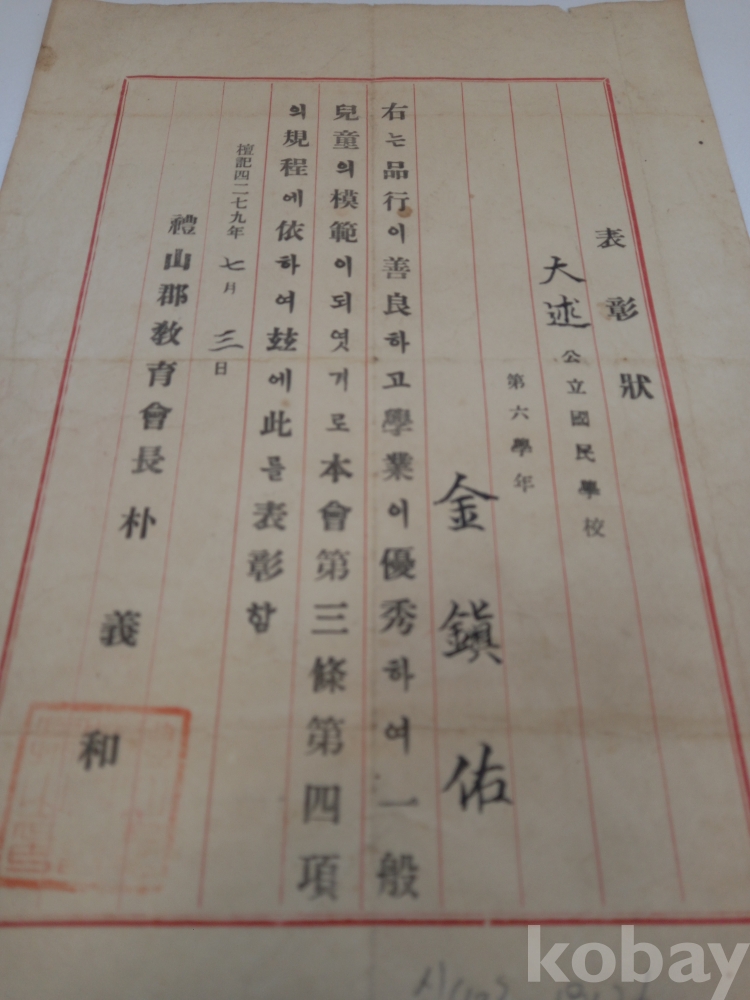 表彰狀
大述公立國民學校
第六學年
金鎭佑
右는品行이善良하고學業이優秀하여一般
兒童의模範이되엿기로本會第三條第四項
의規程에依하여玆에此를表彰함
檀記四二七九年七月三日
禮山郡敎育會長朴義和
kobay